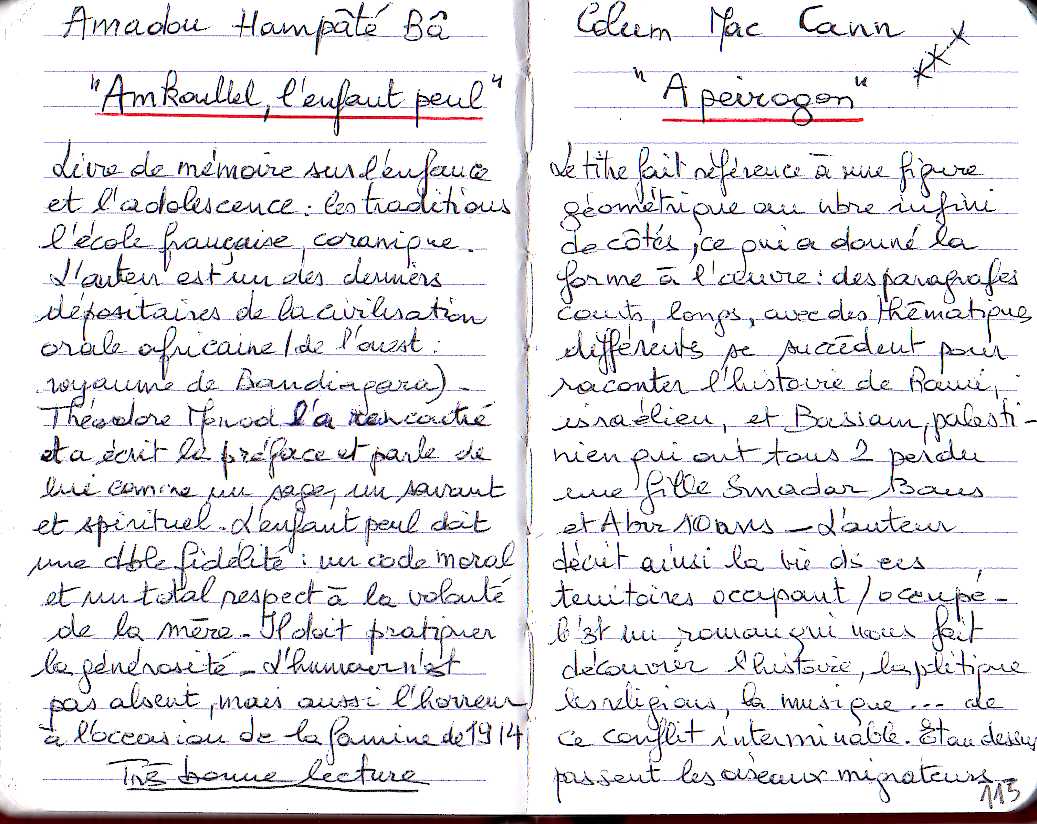 Amadou Hampâté Bâ
"Amkoullel, l'enfant peul"
Livre de mémoire sur l'enfance
et l'adolescence : les traditions
l'école française, coranique.
L'auteur est un des derniers
dépositaires de la civilisation
orale africaine (de l'ouest :
royaume de Bandiagara) -
Théodore Monod l'a rencontré
et a écrit la préface et parle de
lui comme un sage, un savant
et spirituel. L'enfant peul doit
une dble fidélité : un code moral
et un total respect à la volonté
de la mère - Il doit pratiquer
la générosité - L'humour n'est
pas absent, mais aussi l'horreur
à l'occasion de la famine de 1914
Très bonne lecture
Colum Mac Cann
xxx
"Apeirogon"
Le titre fait référence à une figure
géométrique au nbre infini
de côtés, ce qui a donné la
forme à l'œuvre : des paragrafes
courts, longs, avec des thématiques
différents se succèdent pour
raconter l'histoire de Rami,
israélien, et Bassam, palesti-
nien qui ont tous 2 perdu
une fille Smadar 13 ans
et Abir 10 ans - L'auteur
décrit ainsi la vie ds ces
territoires occupant / occupé -
C'est un roman qui nous fait
découvrir l'histoire, la pltique
les religions, la musique ... de
ce conflit interminable. Et au dessus
passent les oiseaux migrateurs -
115